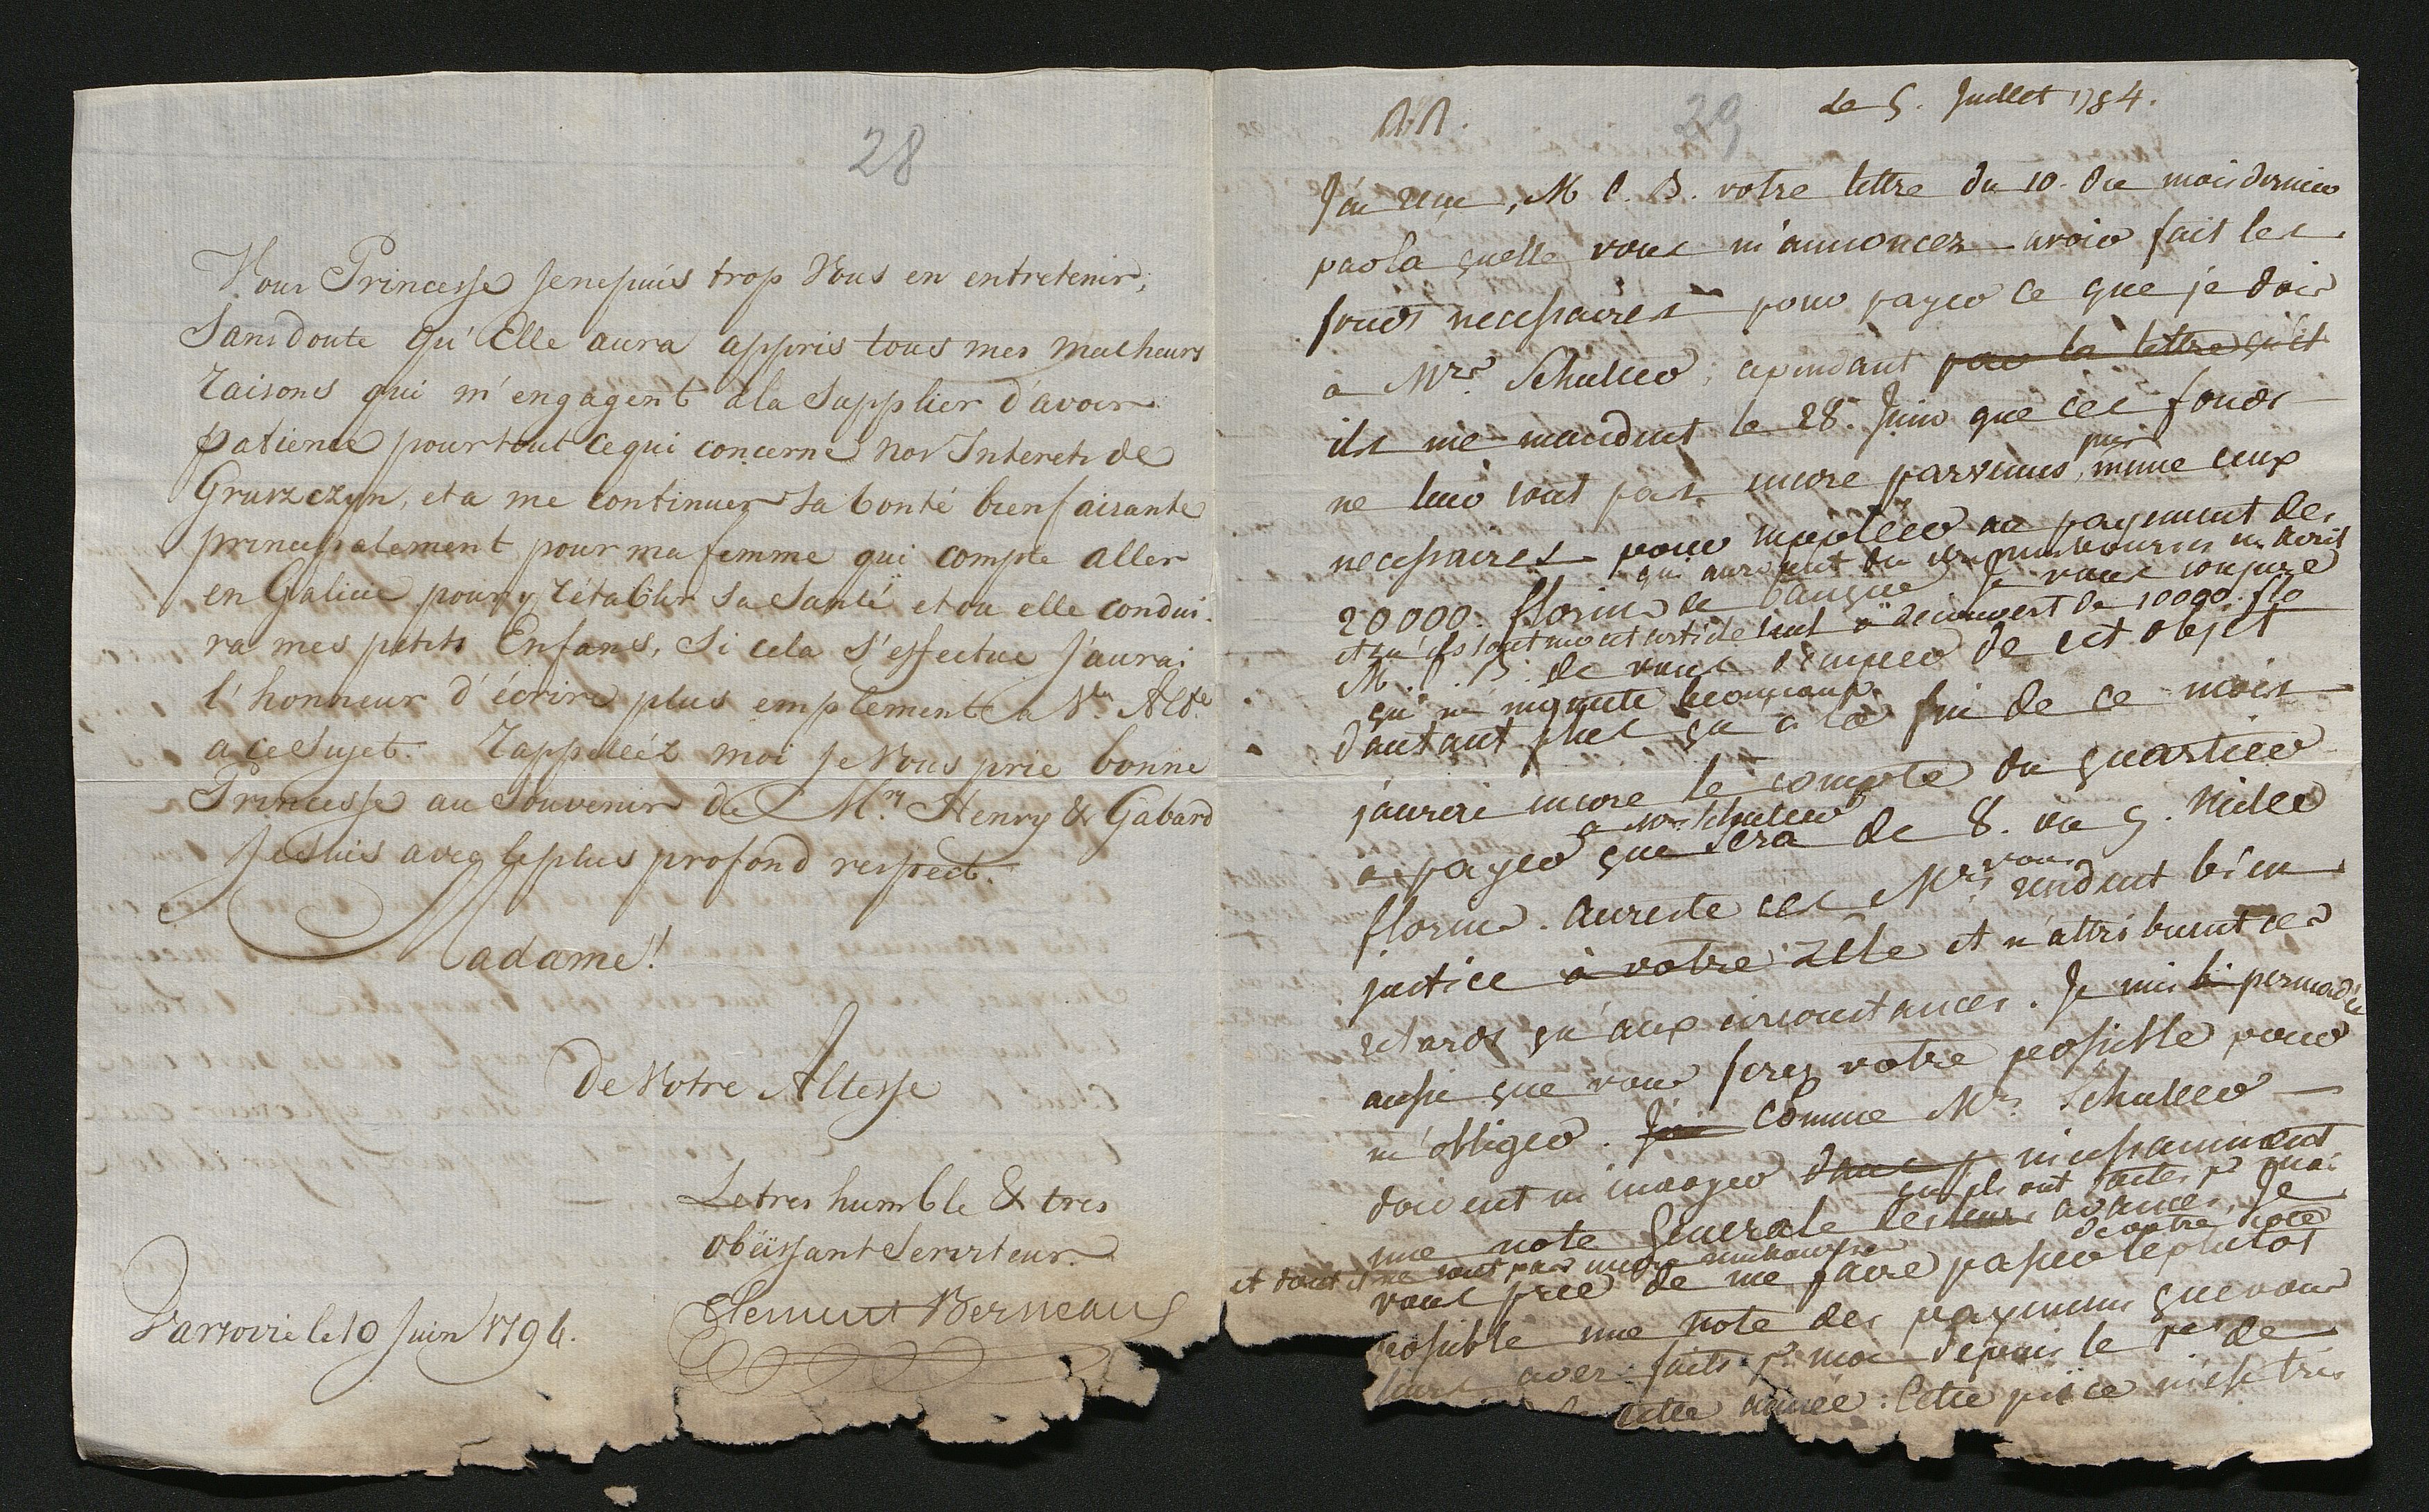 28
Vous Princesse je ne puis trop Vous en entretenir,
Sans doute qu'Elle aura appris tous mes malheurs
raisons qui m'engagent à la Supplier d'avoir
patience pour tout ce qui concerne nos Interets de
Gruszczyn, et a me continuer Sa bonté bienfaisante
principalement pour ma femme qui compte aller
en Galicie pour y rétablir Sa Santé et ou elle condui-
ra mes petits Enfans, Si cela S'effectue j'aurai
l'honneur d'écrire plus emplement a Vre. Altse
a ce Sujet. rappelléz moi je Vous prie bonne
Princesse au Souvenir de Mrs. Henry & Gabard
Je Suis avec le plus profond respect.
Madame!
De Votre Altesse
Le tres humble & tres
obéissant Serviteur
Clement Berneaux
Varsovie le 10 Juin 1794.
29
Le 5. Juillet 1784.
J'ai reçu, M. C. B. votre lettre du 10. du mois dernier
par la quelle vous m'annoncez avoir fait les
fonds necessaires pour payer ce que je dois
à Mrs. Schulter; cependant par la lettre qu'il
ils me mandent le 28. Juin que ces fonds
ne leur sont pas encore parvenus, pas même ceux
necessaires pour au payement des
qui auroient du en avril
20000. florins de banque Je vous conjure
et qu'ils sont pour cet article seul à decouvert de 10000. flo
M. C. B. de vous occuper de cet objet
qui m' beaucoup
d'autant plus qu'à la fin de ce mois
j'aurai encore le compte du quartier
a Mrs Schulter
à payer que sera de 8. ou 9. mille
florins. Au reste ces Mrs. vous rendent bien
justice à votre zèle et n'attribuent ces
retards qu'aux circonstances. Je suis persuadée
aussi que vous ferez votre possible pour
m'obliger. J'ai Comme Mrs. Schulter
doivent m'envoyer incessamment
qu'ils ont faites pr moi
une note generale des leurs avances, Je
et dont ils ne sont pas encore remboursé de votre coté
vous prie de me faire passer le plutot
possible une note des payemens que vous
avez faits pr. moi depuis le 1er de
cette année: Cette pièce m'est très